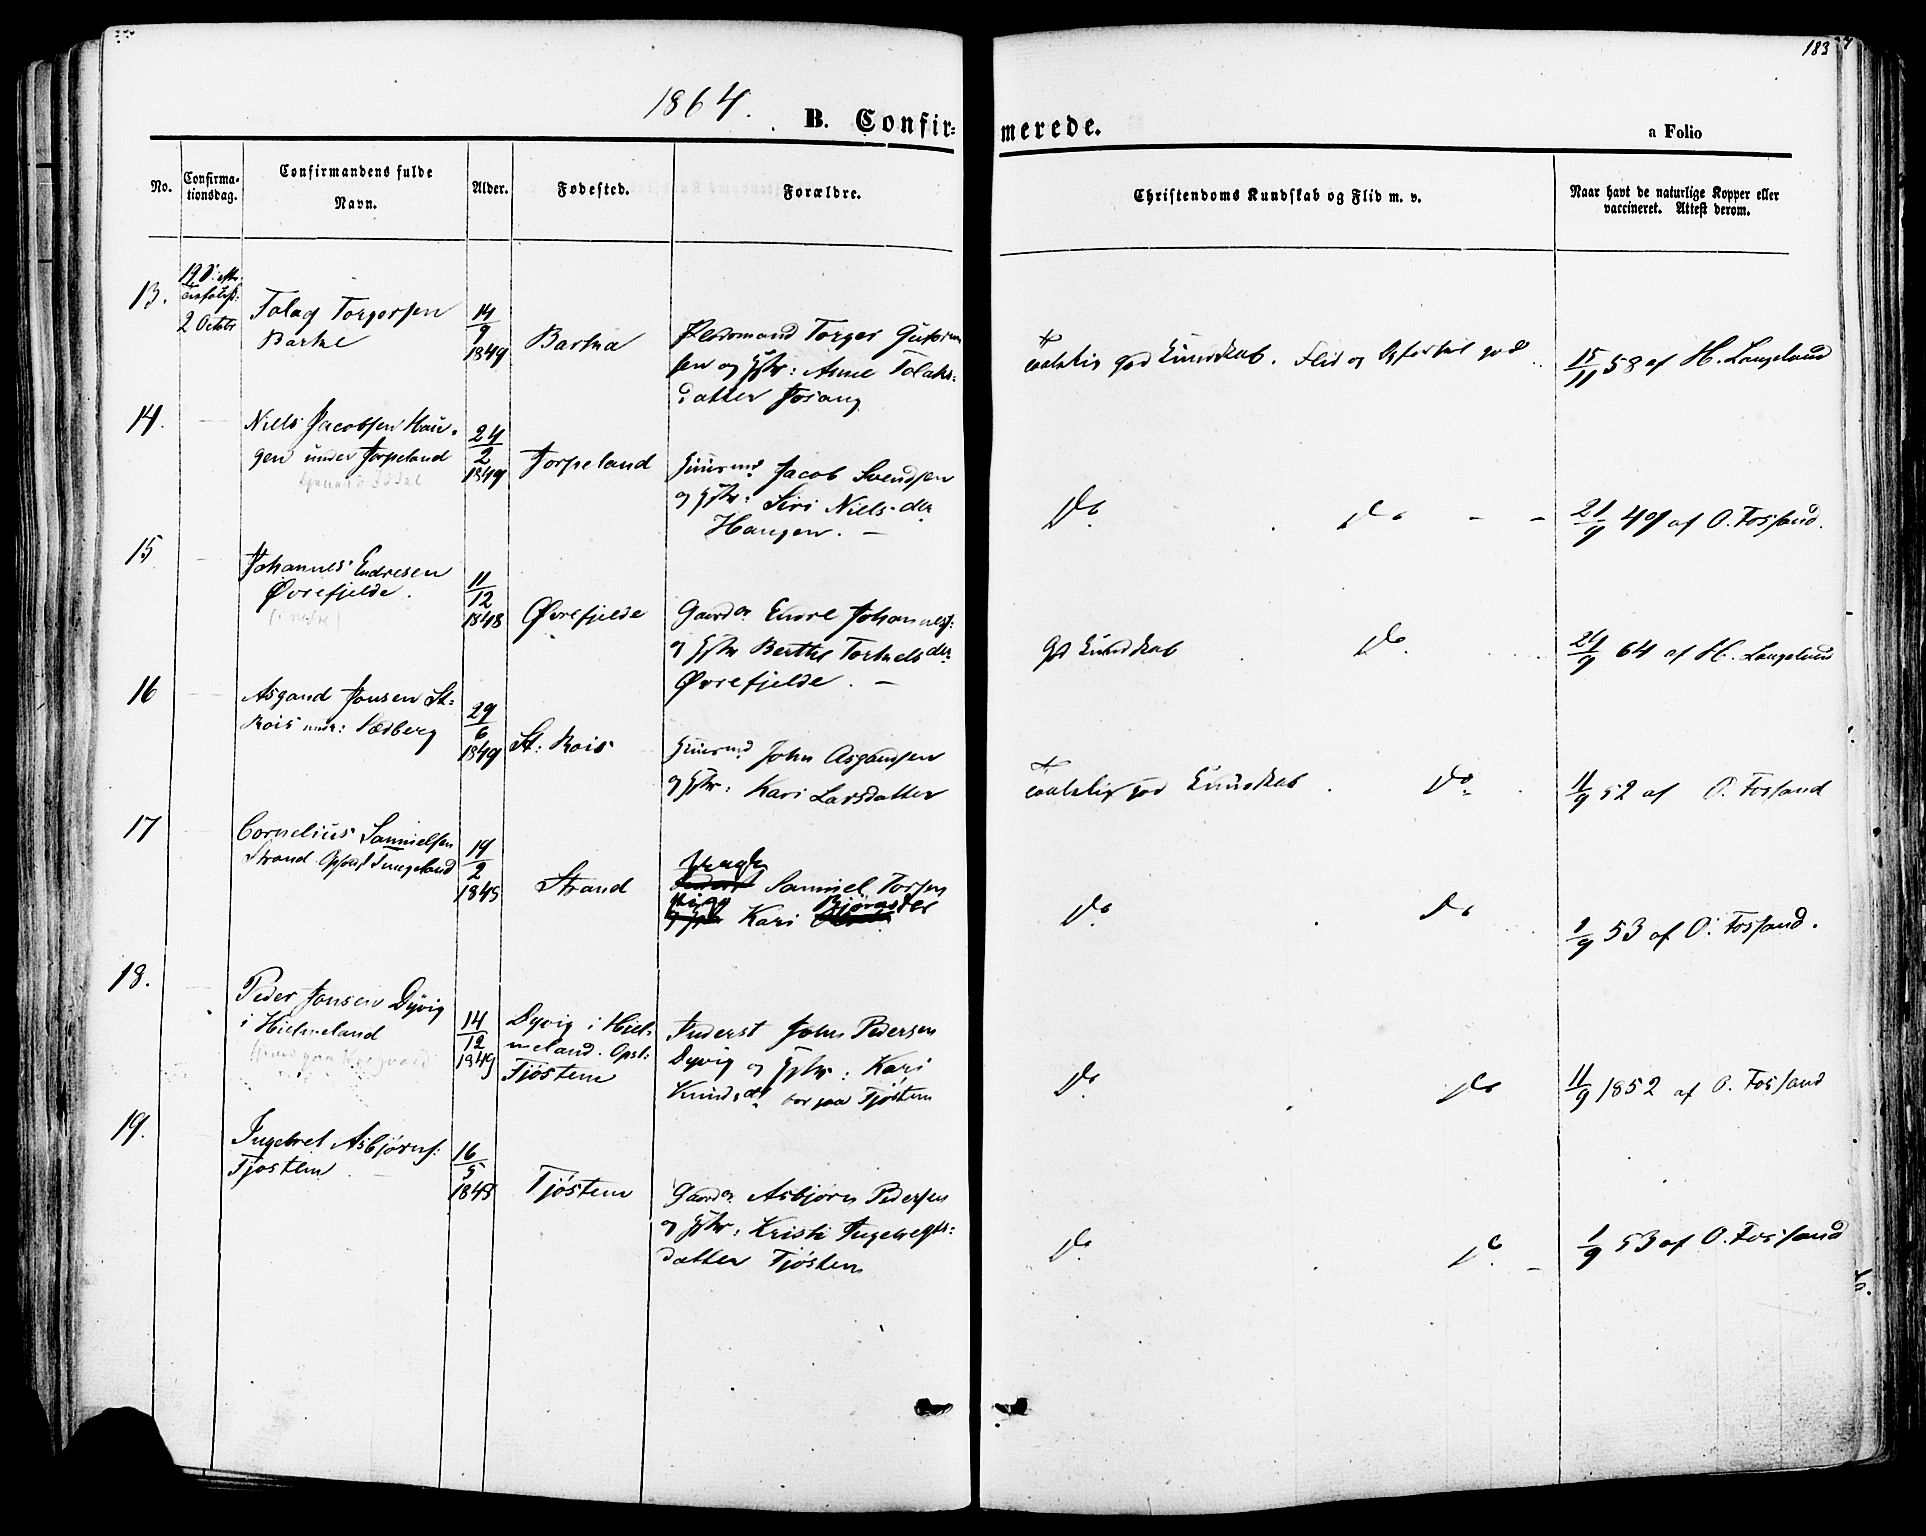 183
1864.
B. Confir-
merede.
a Folio
No.
Confirma-
tionsdag.
Confirmandens fulde
Navn.
Alder.
Fødested.
Forældre.
Christendoms Kundskab og Flid m. v.
Naar havt de naturlige Kopper eller
vaccineret. Attest derom.
13.
2 Octobr
Tolag Torgersen
Barke
14
9
1849
Barka
Torger
sen og Hstr: Anne Tolaks-
datter Jøsang
god Kundskab. Flid og god
15/11 58 af H. Langeland
14.
Niels Jacobsen Hau-
gen under Jørpeland
24
2
1849
Jørpeland
Huusmd Jacob Svendsen
og Hstr: Siri Niels-dtr
Haugen. —
Do. Do - -
21/9 49 af O. Fossand.
15
Johannes Endresen
Øvrefjelde.
11
12
1848
Øvrefjelde
Gaardm Endre Johannes:
og Hstr Berthe Torkels dtr
Øvrefjelde. —
God Kundskab Do.
24/9 64 af H. Langeland
16
Asgaud Jonsen St:
Rois undr: Vadberg
29
6
1849
St: Rois
Huusmd John Asgaudsen
og Hstr: Kari Larsdatter
god Kundskab. Do
11/9 52 af O. Fossand
17
Cornelius Samuelsen
Strand
19
2
1848
Strand
Samuel
Kari Bjørnsdtr
Do. Do
1/9 53 af O. Fossand.
18.
Peder Jonsen Dyvig
i Hielmeland
14
12
1849
Dyvig i Hiel-
meland. Opst:
Tjøstem
Inderst John Pedersen
Dyvig og Hstr: Kari
Knudsdt boe paa Tjøstem
Do. Do
11/9 1852 af O. Fossand
19.
Ingebret Asbjørns:
Tjøstem
16
5
1848
Tjøstem
Gaardm Asbjørn Pedersen
og Hstr: Kristi Ingebregts-
datter Tjøstem
Do. Do. —
1/9 53 af O. Fossand